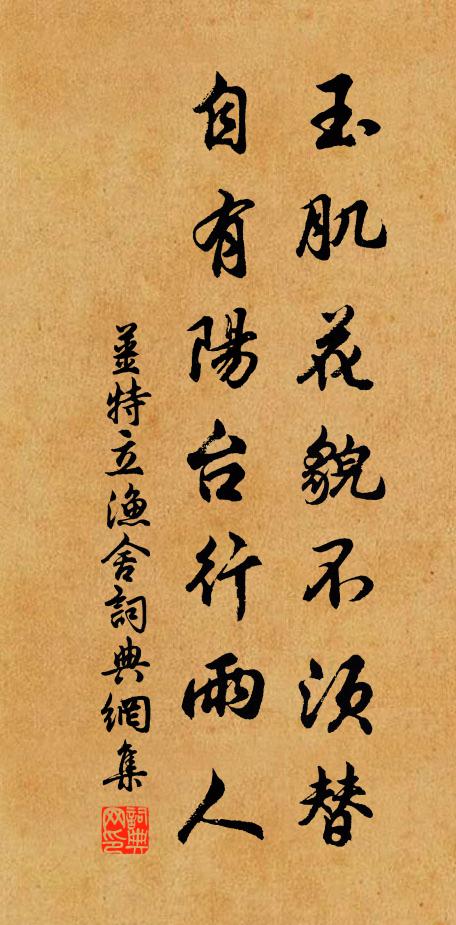 玉肌花貌不須替
自有陽台行雨人
姜特立漁舍詞典網集
詞典網印